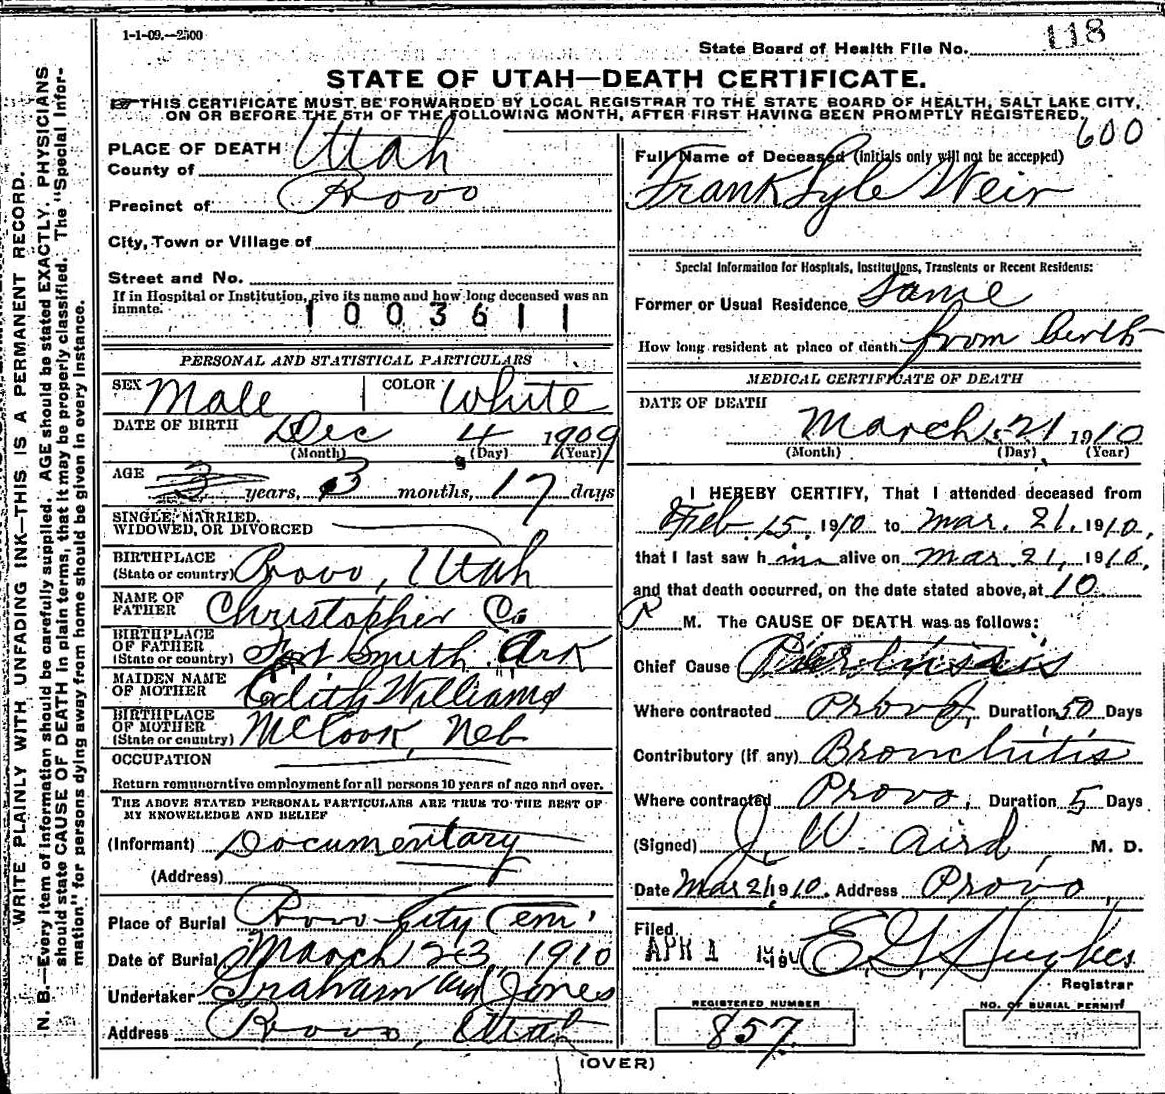 1-1-09.—2500
State Board of Health File No. 118
STATE OF UTAH—DEATH CERTIFICATE.
THIS CERTIFICATE MUST BE FORWARDED BY LOCAL REGISTRAR TO THE STATE BOARD OF HEALTH, SALT LAKE CITY,
ON OR BEFORE THE 5TH OF THE FOLLOWING MONTH, AFTER FIRST HAVING BEEN PROMPTLY REGISTERED.
600
N. B.—Every item of information should be carefully supplied. AGE should be stated EXACTLY. PHYSICIANS
should state CAUSE OF DEATH in plain terms, that it may be properly classified. The "Special Infor-
mation" for persons dying away from home should be given in every instance.
WRITE PLAINLY WITH UNFADING INK—THIS IS A PERMANENT RECORD.
PLACE OF DEATH
County of Utah
Precinct of Provo
City, Town or Village of
Street and No.
If in Hospital or Institution, give its name and how long deceased was an
inmate.
1003611
PERSONAL AND STATISTICAL PARTICULARS
SEX Male COLOR White
DATE OF BIRTH Dec 4 1909
(Month) (Day) (Year)
AGE 3 years, 3 months, 17 days
SINGLE, MARRIED,
WIDOWED, OR DIVORCED
BIRTHPLACE
(State or country) Provo, Utah
NAME OF
FATHER Christopher C.
BIRTHPLACE
OF FATHER
(State or country) Fort Smith Ark
MAIDEN NAME
OF MOTHER Edith Williams
BIRTHPLACE
OF MOTHER
(State or country) McCook, Neb
OCCUPATION
Return remunerative employment for all persons 10 years of age and over.
THE ABOVE STATED PERSONAL PARTICULARS ARE TRUE TO THE BEST OF
MY KNOWLEDGE AND BELIEF
(Informant) Documentary
(Address)
Place of Burial Provo City Cem.
Date of Burial March 23, 1910
Undertaker Graham and Jones
Address Provo, Utah
Full Name of Deceased (Initials only will not be accepted)
Frank Lyle Weir
Special Information for Hospitals, Institutions, Transients or Recent Residents:
Former or Usual Residence Same
How long resident at place of death from birth
MEDICAL CERTIFICATE OF DEATH
DATE OF DEATH
March 21 1910
(Month) (Day) (Year)
I HEREBY CERTIFY, That I attended deceased from
Feb. 15, 1910 to Mar. 21, 1910,
that I last saw h im alive on Mar. 21, 1910,
and that death occurred, on the date stated above, at 10
P M. The CAUSE OF DEATH was as follows:
Chief Cause
Where contracted Provo, Duration 50 Days
Contributory (if any) Bronchitis
Where contracted Provo, Duration 5 Days
(Signed) J. W. Aird, M. D.
Date Mar 21, 1910. Address Provo,
Filed
APR 1 190 E. G. Hughes
Registrar
REGISTERED NUMBER
857
NO. OF BURIAL PERMIT
(OVER)